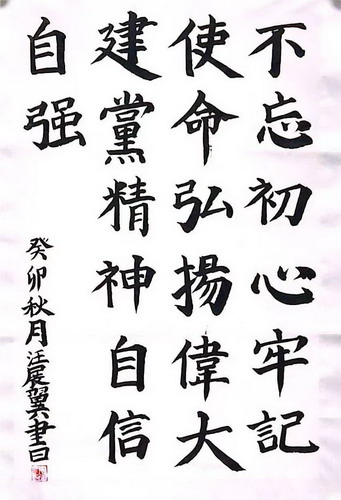 不忘初心牢記
使命弘揚偉大
建黨精神自信
自强
癸卯秋月汪展翼書曰